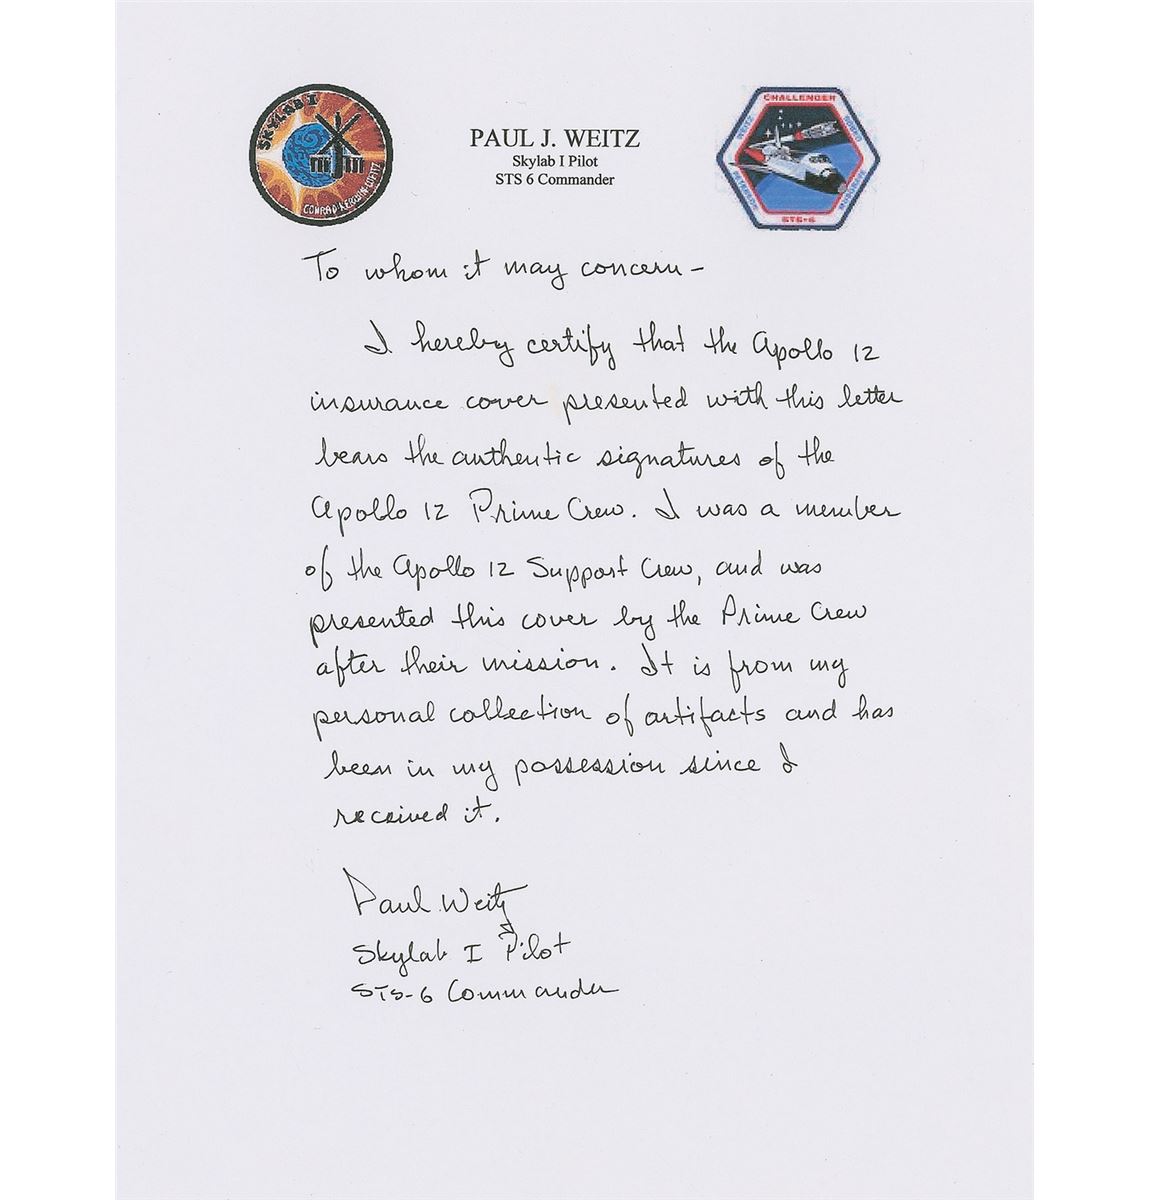 SKYLAB I
CONRAD-KERWIN-WEITZ
PAUL J. WEITZ
Skylab I Pilot
STS 6 Commander
CHALLENGER
WEITZ
BOBKO
PETERSON
MUSGRAVE
STS-6
To whom it may concern-
I hereby certify that the Apollo 12
insurance cover presented with this letter
bears the authentic signatures of the
Apollo 12 Prime Crew. I was a member
of the Apollo 12 Support Crew, and was
presented this cover by the Prime Crew
after their mission. It is from my
personal collection of artifacts and has
been in my possession since I
received it.
Paul Weitz
Skylab I Pilot
STS-6 Commander